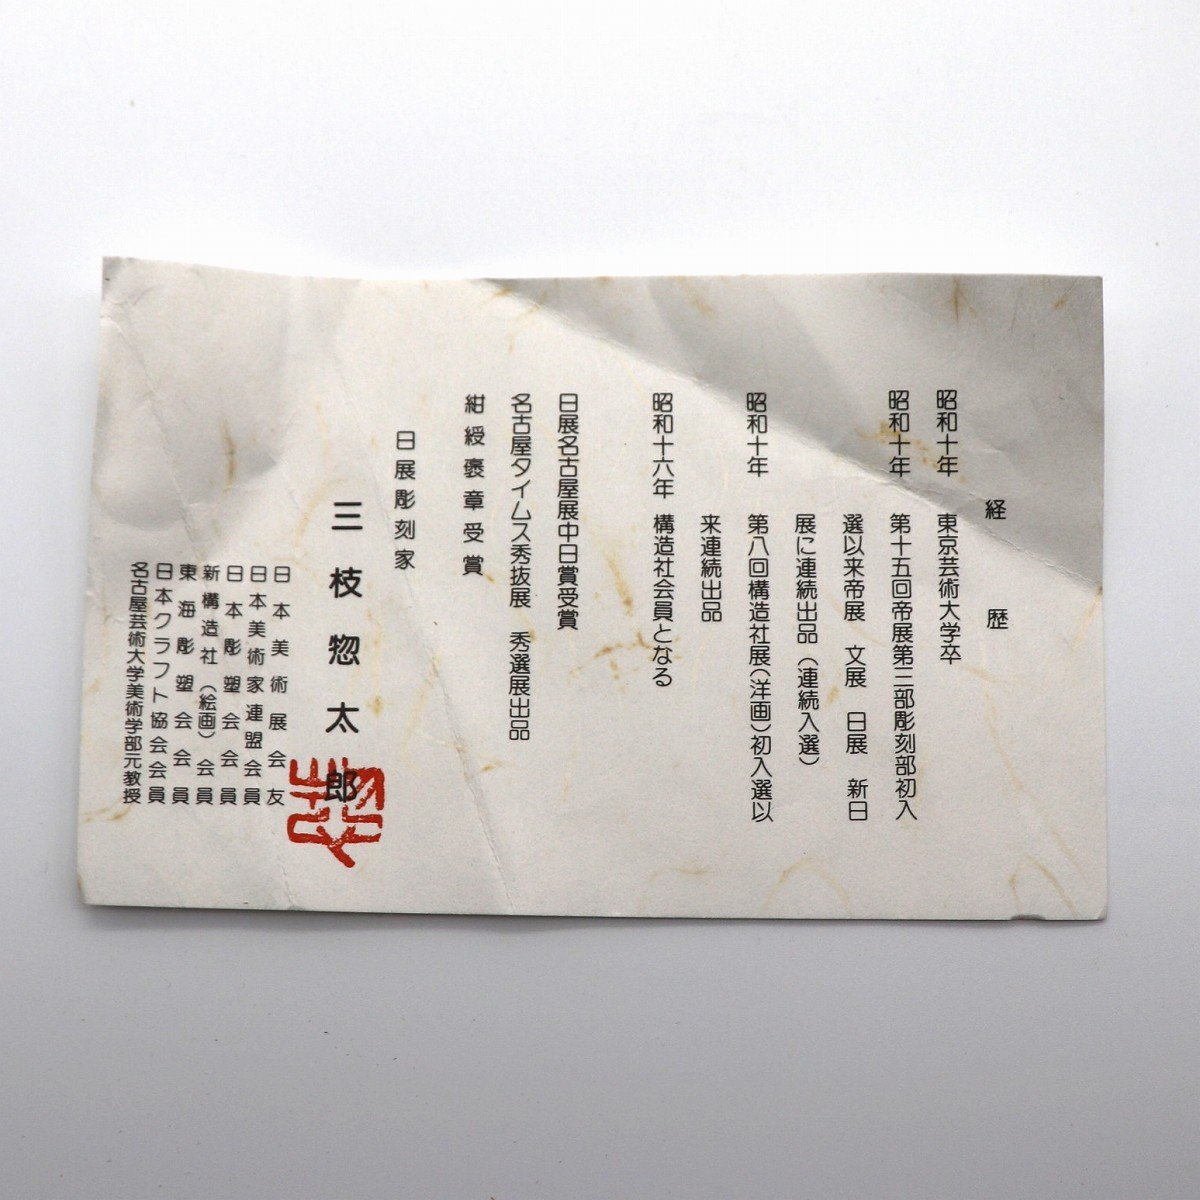 経歴
昭和十年 東京芸術大学卒
昭和十年 第十五回帝展第三部彫刻部初入
選以来帝展 文展 日展 新日
展に連続出品(連続入選)
昭和十年 第八回構造社展(洋画)初入選以
来連続出品
昭和十六年 構造社会員となる
日展名古屋展中日賞受賞
名古屋タイムス秀抜展 秀選展出品
紺綬褒章受賞
日展彫刻家
三枝惣太郎
日本美術展会友
日本美術家連盟会員
日本彫塑会会員
新構造社(絵画)会員
東海彫塑会会員
日本クラフト協会会員
名古屋芸術大学美術学部元教授